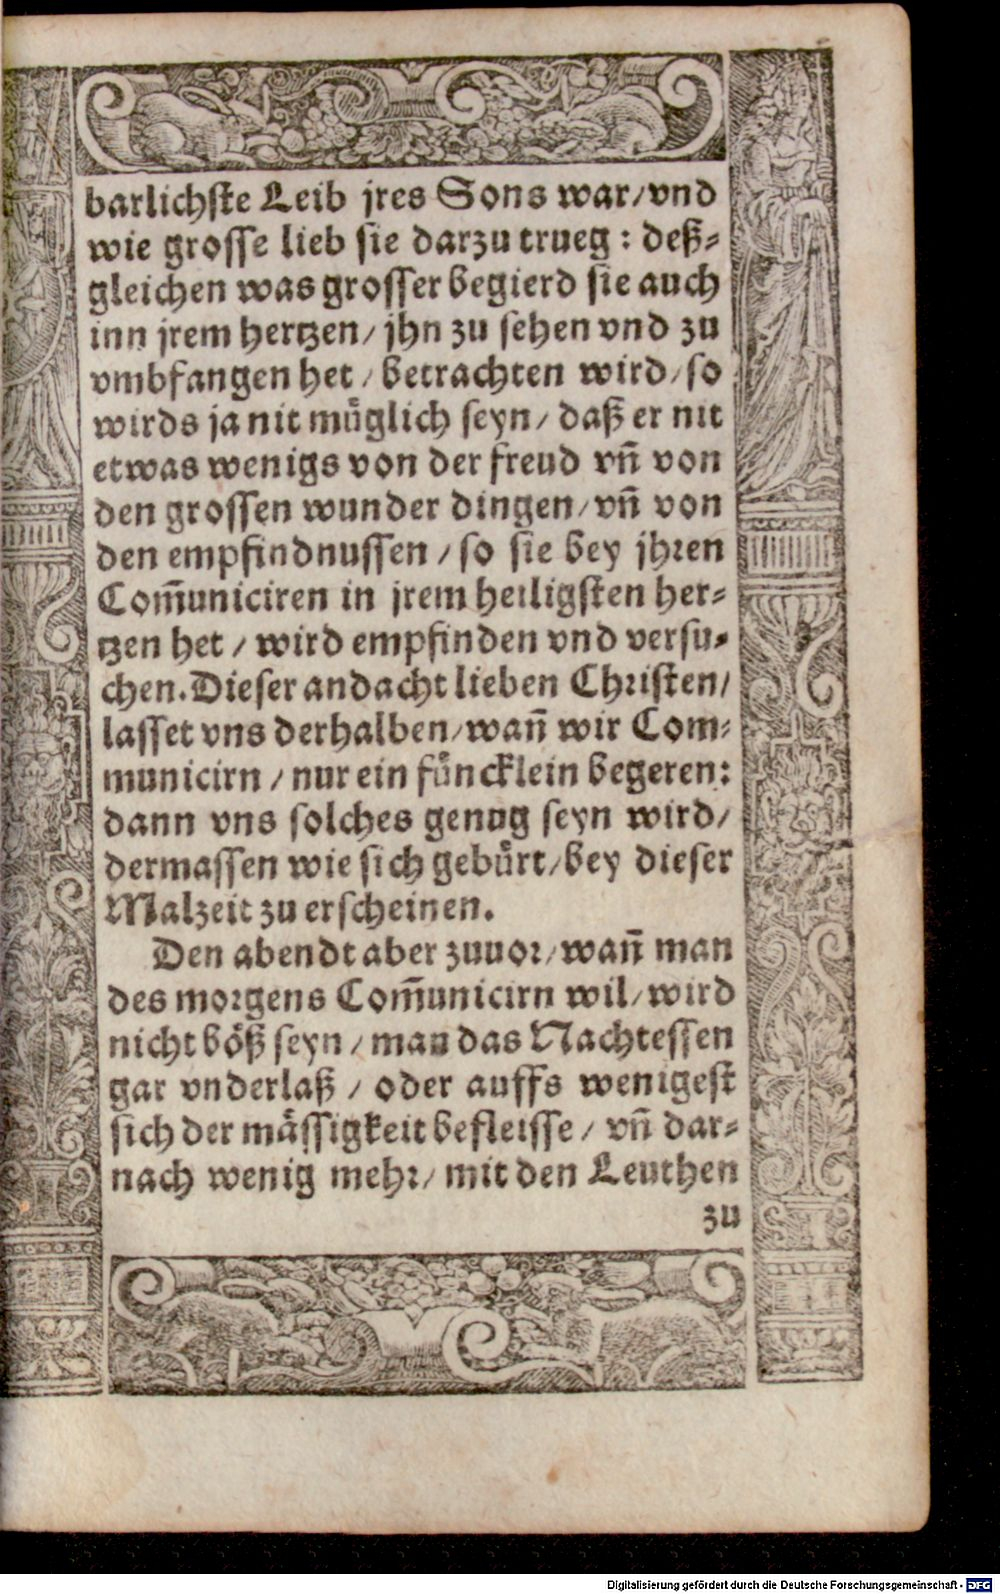 barlichste Leib jres Sons war/vnd
wie grosse lieb sie darzu trueg: deß-
gleichen was grosser begierd sie auch
inn jrem hertzen/ jhn zu sehen vnd zu
vmbfangen het/ betrachten wird/so
wirds ja nit müglich seyn/ daß er nit
etwas wenigs von der freud vñ von
den grossen wunder dingen/vñ von
den empfindnussen/so sie bey jhren
Com̃uniciren in jrem heiligsten her-
tzen het/ wird empfinden vnd versu-
chen. Dieser andacht lieben Christen/
lasset vns derhalben/wañ wir Com-
municirn/ nur ein füncklein begeren:
dann vns solches genug seyn wird/
dermassen wie sich gebürt/bey dieser
Malzeit zu erscheinen.
Den abendt aber zuuor/wañ man
des morgens Com̃unicirn wil/wird
nicht böß seyn/ man das Nachtessen
gar vnderlaß/ oder auffs wenigest
sich der mässigkeit befleisse/ vñ dar-
nach wenig mehr/mit den Leuthen
zu
Digitalisierung gefördert durch die Deutsche Forschungsgemeinschaft - DFG